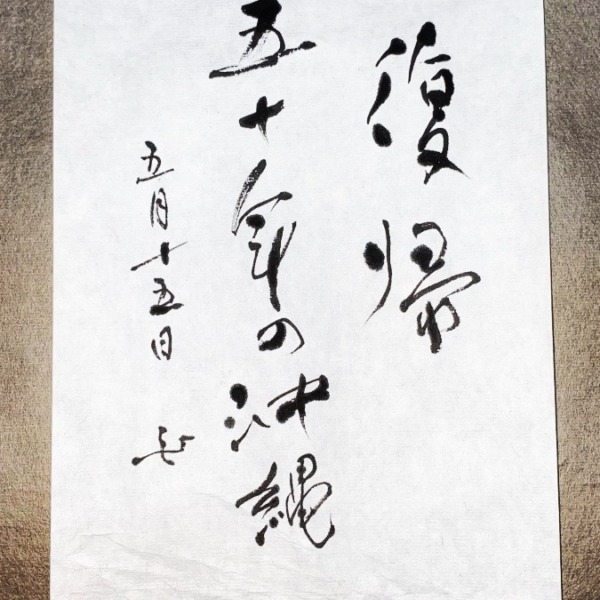 復帰
五十年の沖縄
五月十五日